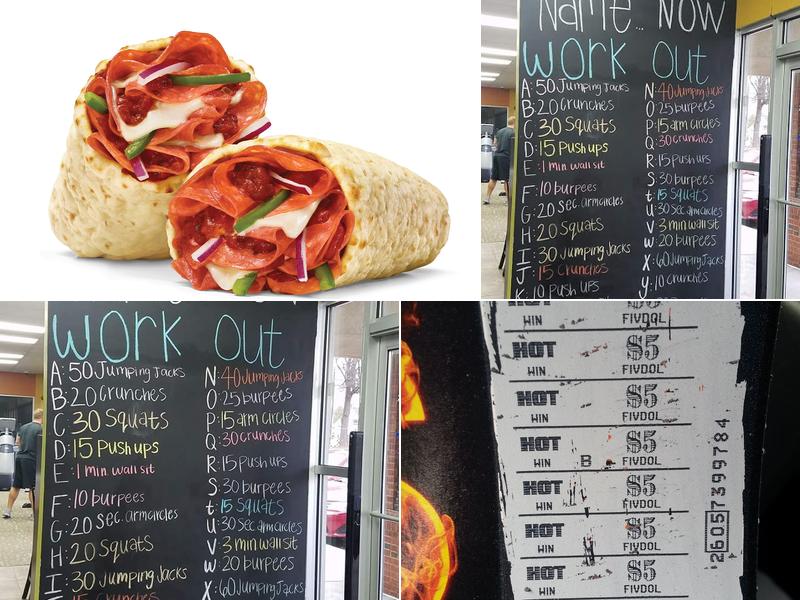 Name... Now
Work out
A: 50 Jumping Jacks
B: 20 Crunches
C 30 Squats
D: 15 Push ups
E: 1 min. wall sit
F: 10 burpees
G: 20 Sec. arm circles
H: 20 Squats
I: 30 Jumping Jacks
J: 15 Crunches
K: 10 PUSH UPS
N: 40 Jumping Jacks
O: 25 burpees
P: 15 arm circles
Q: 30 crunches
R: 15 Push ups
S: 30 burpees
t: 15 Squats
U: 30 Sec arm circles
V 3 min wall sit
W: 20 burpees
X: 60 Jumping Jacks
y: 10 crunches
Work out
A: 50 Jumping Jacks
B: 20 Crunches
C 30 Squats
D: 15 Push ups
E: 1 min. wall sit
F: 10 burpees
G: 20 Sec. arm circles
H: 20 Squats
I: 30 Jumping Jacks
15 Crunches
N: 40 Jumping Jacks
O: 25 burpees
P: 15 arm circles
Q: 30 crunches
R: 15 Push ups
S: 30 burpees
t: 15 Squats
U: 30 Sec arm circles
V 3 min wall sit
W: 20 burpees
X: 60 Jumping Jacks
HOT $5
WIN FIVDOL
HOT $5
WIN FIVDOL
HOT $5
WIN FIVDOL
HOT $5
WIN B FIVDOL
HOT $5
WIN FIVDOL
HOT $5
WIN FIVDOL
HOT $5
WIN FIVDOL
26057399784